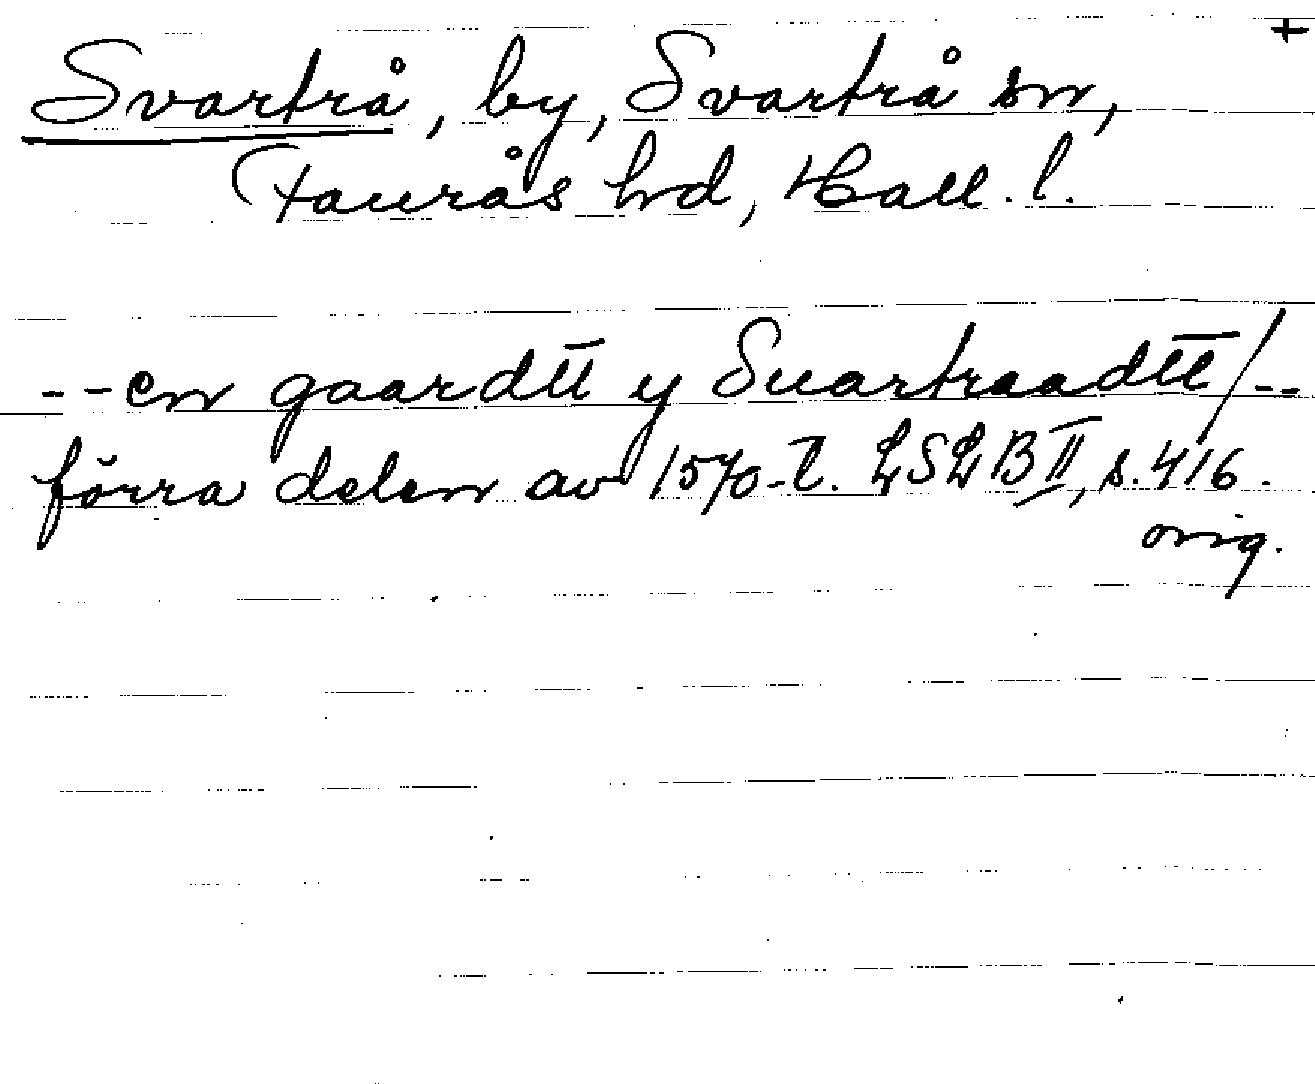 +
Svartrå, by, Svartrå sn,
Faurås hd, Hall. l.
--en gaardtt y Suartraadtt/--
förra delen av 1570-t. LSLB II, s. 416.
orig.